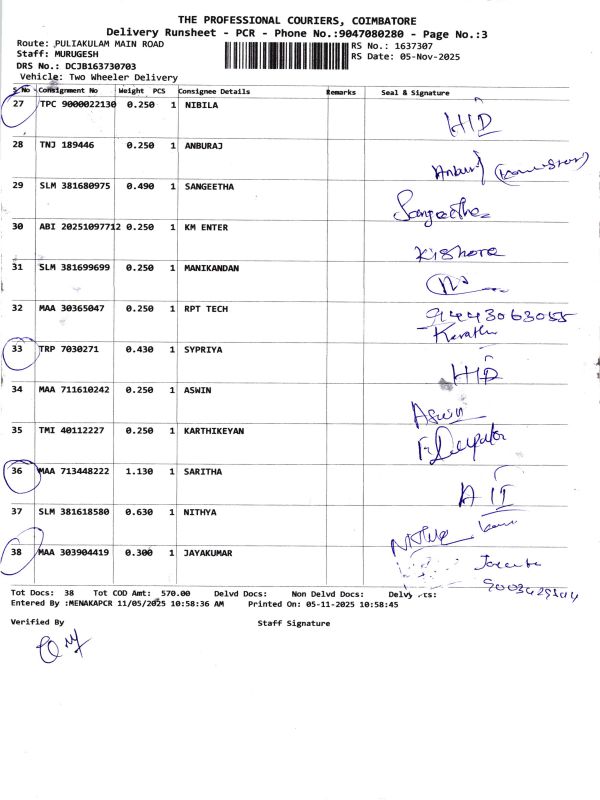 THE PROFESSIONAL COURIERS, COIMBATORE
Delivery Runsheet - PCR - Phone No.:9047080280 - Page No.:3
Route: PULIAKULAM MAIN ROAD RS No.: 1637307
Staff: MURUGESH RS Date: 05-Nov-2025
DRS No.: DCJB163730703
Vehicle: Two Wheeler Delivery
S No Consignment No Weight PCS Consignee Details Remarks Seal & Signature
27 TPC 9000022130 0.250 1 NIBILA
HID
28 TNJ 189446 0.250 1 ANBURAJ
Anburaj
29 SLM 381680975 0.490 1 SANGEETHA
Sangeetha
30 ABI 20251097712 0.250 1 KM ENTER
Kishore
31 SLM 381699699 0.250 1 MANIKANDAN
32 MAA 30365047 0.250 1 RPT TECH
94443063055
33 TRP 7030271 0.430 1 SYPRIYA
HID
34 MAA 711610242 0.250 1 ASWIN
Aswin
35 TMI 40112227 0.250 1 KARTHIKEYAN
36 MAA 713448222 1.130 1 SARITHA
A IT
37 SLM 381618580 0.630 1 NITHYA
38 MAA 303904419 0.300 1 JAYAKUMAR
Tot Docs: 38 Tot COD Amt: 570.00 Delvd Docs: Non Delvd Docs:
Entered By :MENAKAPCR 11/05/2025 10:58:36 AM Printed On: 05-11-2025 10:58:45
Verified By Staff Signature